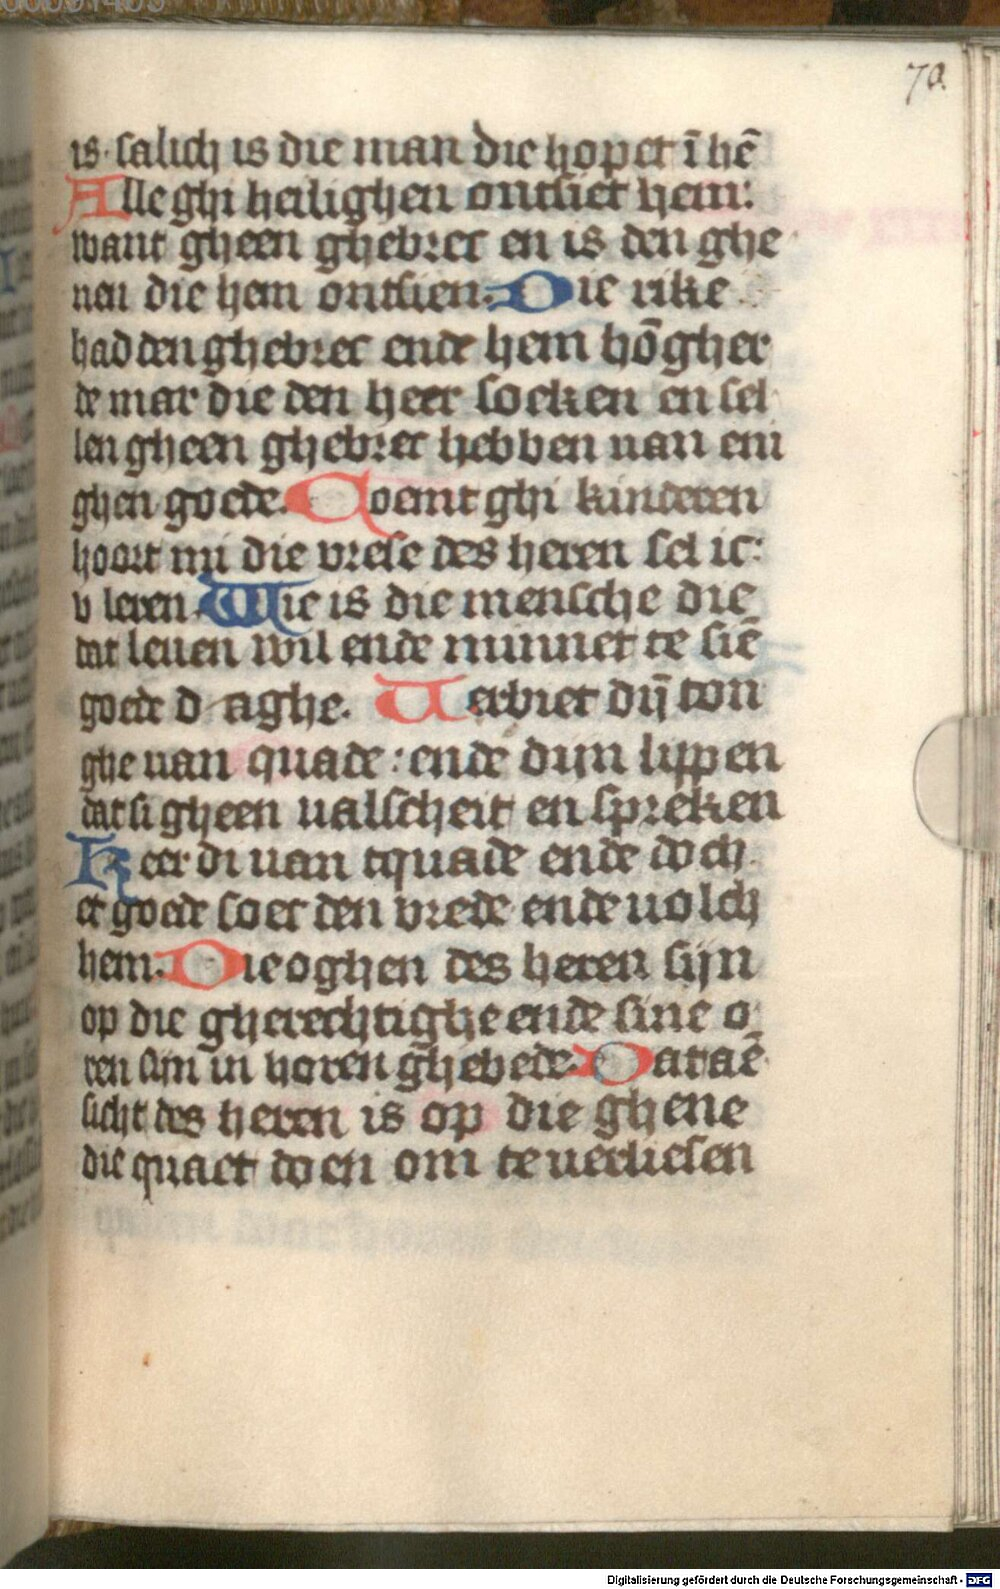 70.
is. salich is die man die hopet ī hē
Alle ghi heilighen ontsiet hem:
want gheen ghebrec en is den ghe
nen die hem ontsien. Die rike
hadden ghebrec ende hem hōgher
de mar die den heer soeken en sel
len gheen ghebrec hebben uan eni
ghen goede. Coemt ghi kinderen
hoort mi die vrese des heren sel ic:
v leren. Wie is die mensche die
dat leuen wil ende minnet te siē
goede daghe. Uerbiet dij̄ ton
ghe uan quade: ende dijn lippen
dat si gheen ualscheit en spreken
Keer di uan tquade ende doch
et goede soec den vrede ende uolch
hem. Die oghen des heren sijn
op die gherechtighe ende sine o
ren sijn in horen ghebede. Dat aē
sicht des heren is op die ghene
die quaet doen om te uerliesen
Digitalisierung gefördert durch die Deutsche Forschungsgemeinschaft - DFG